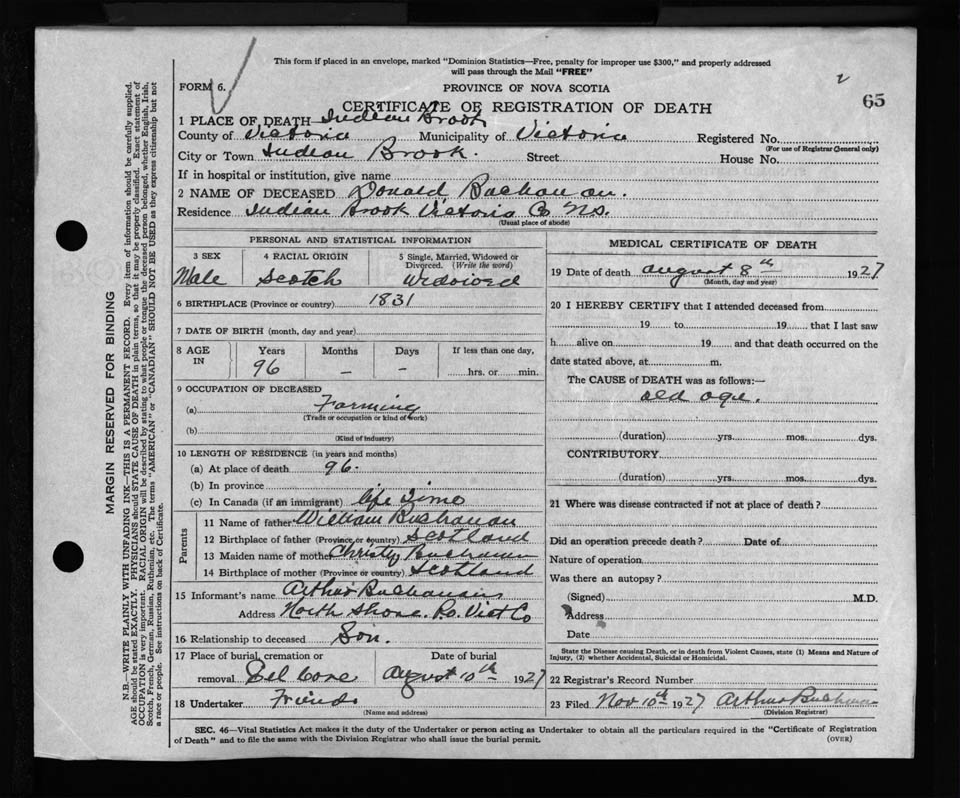 This form if placed in an envelope, marked "Dominion Statistics—Free, penalty for improper use $300," and properly addressed
will pass through the Mail "FREE"
FORM 6.
PROVINCE OF NOVA SCOTIA
2
65
CERTIFICATE OF REGISTRATION OF DEATH
1 PLACE OF DEATH Indian Brook
County of Victoria Municipality of Victoria Registered No.
(For use of Registrar General only)
City or Town Indian Brook. Street House No.
If in hospital or institution, give name
2 NAME OF DECEASED Donald Buchanan.
Residence Indian Brook Victoria Co NS.
(Usual place of abode)
PERSONAL AND STATISTICAL INFORMATION
3 SEX 4 RACIAL ORIGIN 5 Single, Married, Widowed or
Divorced. (Write the word)
Male Scotch Widowed
6 BIRTHPLACE (Province or country) 1831
7 DATE OF BIRTH (month, day and year)
8 AGE IN Years Months Days If less than one day,
96 — — hrs. or min.
9 OCCUPATION OF DECEASED
(a) Farming
(Trade or occupation or kind of work)
(b)
(Kind of industry)
10 LENGTH OF RESIDENCE (in years and months)
(a) At place of death 96.
(b) In province
(c) In Canada (if an immigrant) life time
Parents
11 Name of father William Buchanan
12 Birthplace of father (Province or country) Scotland
13 Maiden name of mother Christy Buchanan
14 Birthplace of mother (Province or country) Scotland
15 Informant's name Arthur Buchanan
Address North Shore. Po. Vict Co
16 Relationship to deceased Son.
17 Place of burial, cremation or Date of burial
removal Eel Cove August 10th 1927
18 Undertaker Friends
(Name and address)
MEDICAL CERTIFICATE OF DEATH
19 Date of death August 8th 1927
(Month, day and year)
20 I HEREBY CERTIFY that I attended deceased from
19 to 19 that I last saw
h alive on 19 and that death occurred on the
date stated above, at m.
The CAUSE of DEATH was as follows:—
old age.
(duration) yrs. mos. dys.
CONTRIBUTORY
(duration) yrs. mos. dys.
21 Where was disease contracted if not at place of death?
Did an operation precede death? Date of
Nature of operation
Was there an autopsy?
(Signed) M.D.
Address
Date
State the Disease causing Death, or in death from Violent Causes, state (1) Means and Nature of
Injury, (2) whether Accidental, Suicidal or Homicidal.
22 Registrar's Record Number
23 Filed Nov 10th 1927 Arthur Buchanan
(Division Registrar)
SEC. 46—Vital Statistics Act makes it the duty of the Undertaker or person acting as Undertaker to obtain all the particulars required in the "Certificate of Registration
of Death" and to file the same with the Division Registrar who shall issue the burial permit.
(OVER)
MARGIN RESERVED FOR BINDING
N.B.—WRITE PLAINLY WITH UNFADING INK—THIS IS A PERMANENT RECORD. Every item of information should be carefully supplied.
AGE should be stated EXACTLY. PHYSICIANS should STATE CAUSE OF DEATH in plain terms, so that it may be properly classified. Exact statement of
OCCUPATION is very important. RACIAL ORIGIN will be described by stating to what people or tongue the deceased person belonged, whether English, Irish,
Scotch, French, German, Russian, Ruthenian, etc. The terms "AMERICAN" or "CANADIAN" SHOULD NOT BE USED as they express citizenship but not
a race or people. See instructions on back of Certificate.